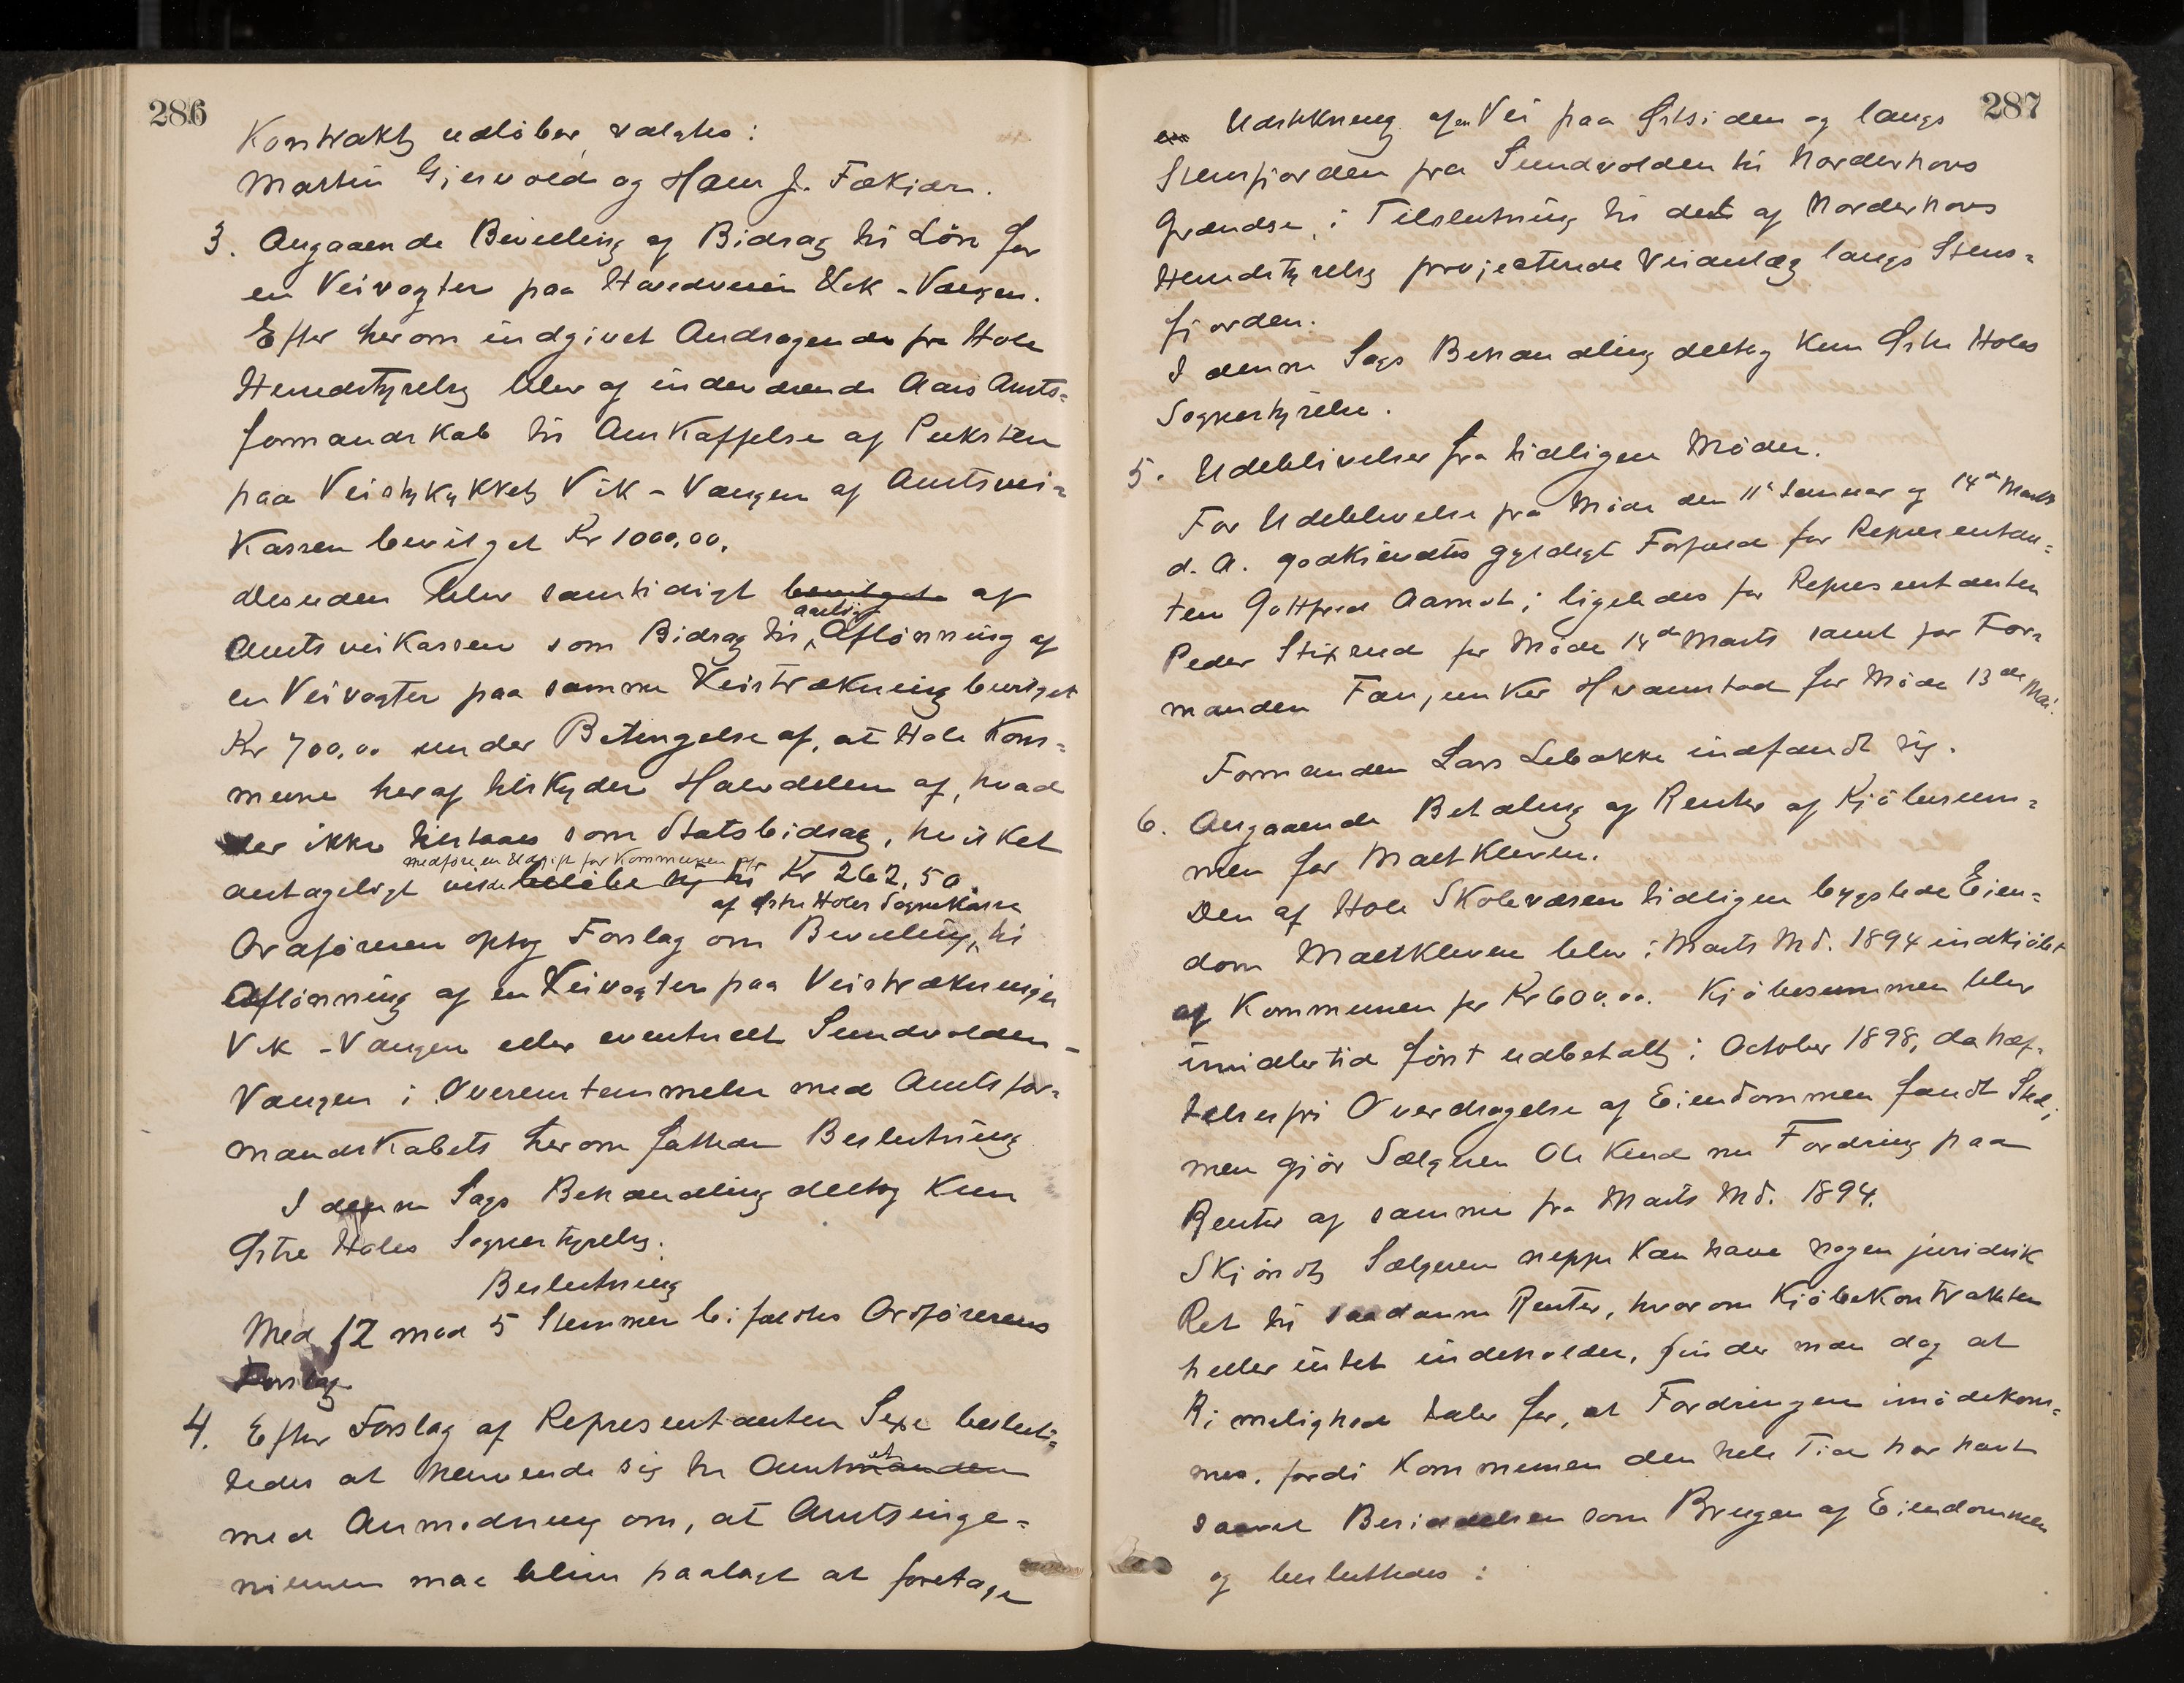 286
Kontrakt udlöber, valgtes:
Martin Gjesvold og Hans J. Fækjær.
3. Angaaende Bevilling af Bidrag til Lön for
en Veivogter paa Hovedveien Vik-Vangen.
Efter herom indgivet Andragende fra Hole
Herredstyrelse blev af inderværende Aars Amts=
formandskab til Anskaffelse af Puksten
paa Veistykket Vik-Vangen af Amtsvei=
kassen bevilget Kr 1000,00.
Desuden blev samtidigt bevilget af
aarligt
Amtsveikassen som Bidrag til Aflönning af
en Veivogter paa samme Veistrækning bevilget
Kr 700,00 under Betingelse af, at Hole Kom=
mune heraf tilskyder Halvdelen af, hvad
der ikke tilstaaes som Statsbidrag, hvilket
medføre en Udgift for Kommunen af
antageligt vilde belöbe sig til Kr 262,50.
af Østre Holes Sognekasse
Ordföreren optog Forslag om Bevilling til
Aflönning af en Veivogter paa Veistrækningen
Vik-Vangen eller eventuelt Sundvolden-
Vangen i Overenstemmelse med Amtsfor=
mandskabets herom fattede Beslutning
I denne Sags Behandling deltog kun
Østre Holes Sognestyrelse.
Beslutning
Med 12 mod 5 Stemmer bifaldtes Ordförerens
Forslag.
4. Efter Forslag af Representanten Sexe beslut=
tedes at henvende sig til Amtmanden
et
med Anmodning om, at Amtsinge=
niören maa blive paalagt at foretage
287
en Udstikning af en Vei paa Østsiden og langs
Stensfjorden fra Sundvolden til Norderhovs
Grændse, i Tilslutning til det af Norderhovs
Herredstyrelse projecterede Veianlæg langs Stens=
fjorden.
I denne Sags Behandling deltog kun Østre Holes
Sognestyrelse.
5. Udeblivelser fra tidligere Möder.
For Udeblivelse fra Möde den 11te Januar og 14de Marts
d. A. godkjendtes gyldigt Forfald for Representan=
ten Gottfred Aamodt; ligeledes for Representanten
Peder Stixrud for Möde 14de Marts samt for For=
manden Fanejunker Hvamstad for Möde 13de Mai.
Formanden Lars Lebakke indfandt sig.
6. Angaaende Betaling af Renter af Kjöbesum=
men for Maltkleven.
Den af Hole Skolevæsen tidligere bygslede Eien=
dom Maltkleven blev i Marts Md. 1894 indkjöbt
af Kommunen for Kr 600.00. Kjöbesummen blev
imidlertid först udbetalt i October 1898, da hæf=
telsesfri Overdragelse af Eiendommen fandt Sted;
men gjör Sælgeren Ole nu Fordring paa
Renter af samme fra Marts Md. 1894.
Skjöndt Sælgeren neppe kan have nogen juridisk
Ret til saadanne Renter, hvorom Kjöbekontrakten
heller intet indeholder, finder man dog at
Rimelighed taler for, at Fordringen imödekom=
mes, fordi Kommunen den hele Tid har havt
saavel Besiddelsen som Brugen af Eiendommen
og besluttedes: